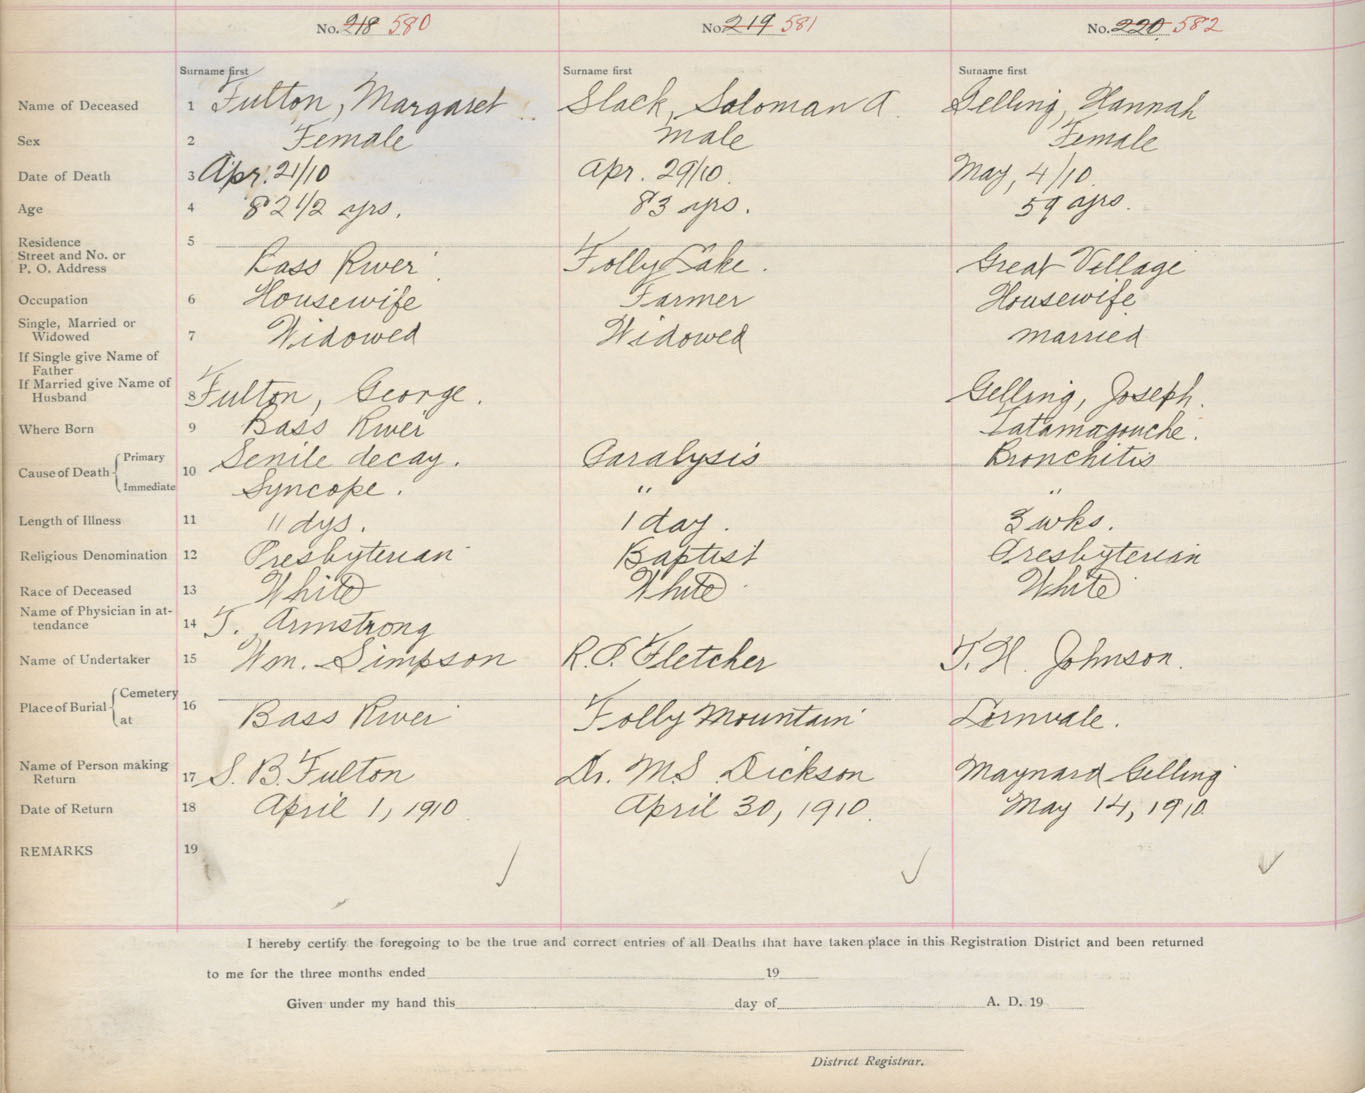 No. 218 580 No. 219 581 No. 220 582
Surname first Surname first Surname first
Name of Deceased 1 Fulton, Margaret Slack, Soloman A. Gelling, Hannah
Sex 2 Female male Female
Date of Death 3 Apr. 21/10 Apr. 29/10. May, 4/10
Age 4 82 1/2 yrs. 83 yrs. 59 yrs.
Residence 5
Street and No. or
P. O. Address Bass River Folly Lake. Great Village
Occupation 6 Housewife Farmer Housewife
Single, Married or
Widowed 7 Widowed Widowed married
If Single give Name of
Father
If Married give Name of
Husband 8 Fulton, George. Gelling, Joseph.
Where Born 9 Bass River Tatamagouche.
Cause of Death Primary 10 Senile decay. Paralysis Bronchitis
Immediate Syncope. " "
Length of Illness 11 11 dys. 1 day. 3 wks.
Religious Denomination 12 Presbyterian Baptist Presbyterian
Race of Deceased 13 White White White
Name of Physician in at-
tendance 14 T. Armstrong
Name of Undertaker 15 Wm. Simpson R. P. Fletcher T. H. Johnson.
Place of Burial Cemetery 16
at Bass River Folly Mountain Lornvale.
Name of Person making
Return 17 S. B. Fulton Dr. M. S. Dickson Maynard Gelling
Date of Return 18 April 1, 1910 April 30, 1910. May 14, 1910
REMARKS 19
I hereby certify the foregoing to be the true and correct entries of all Deaths that have taken place in this Registration District and been returned
to me for the three months ended 19
Given under my hand this day of A. D. 19
District Registrar.